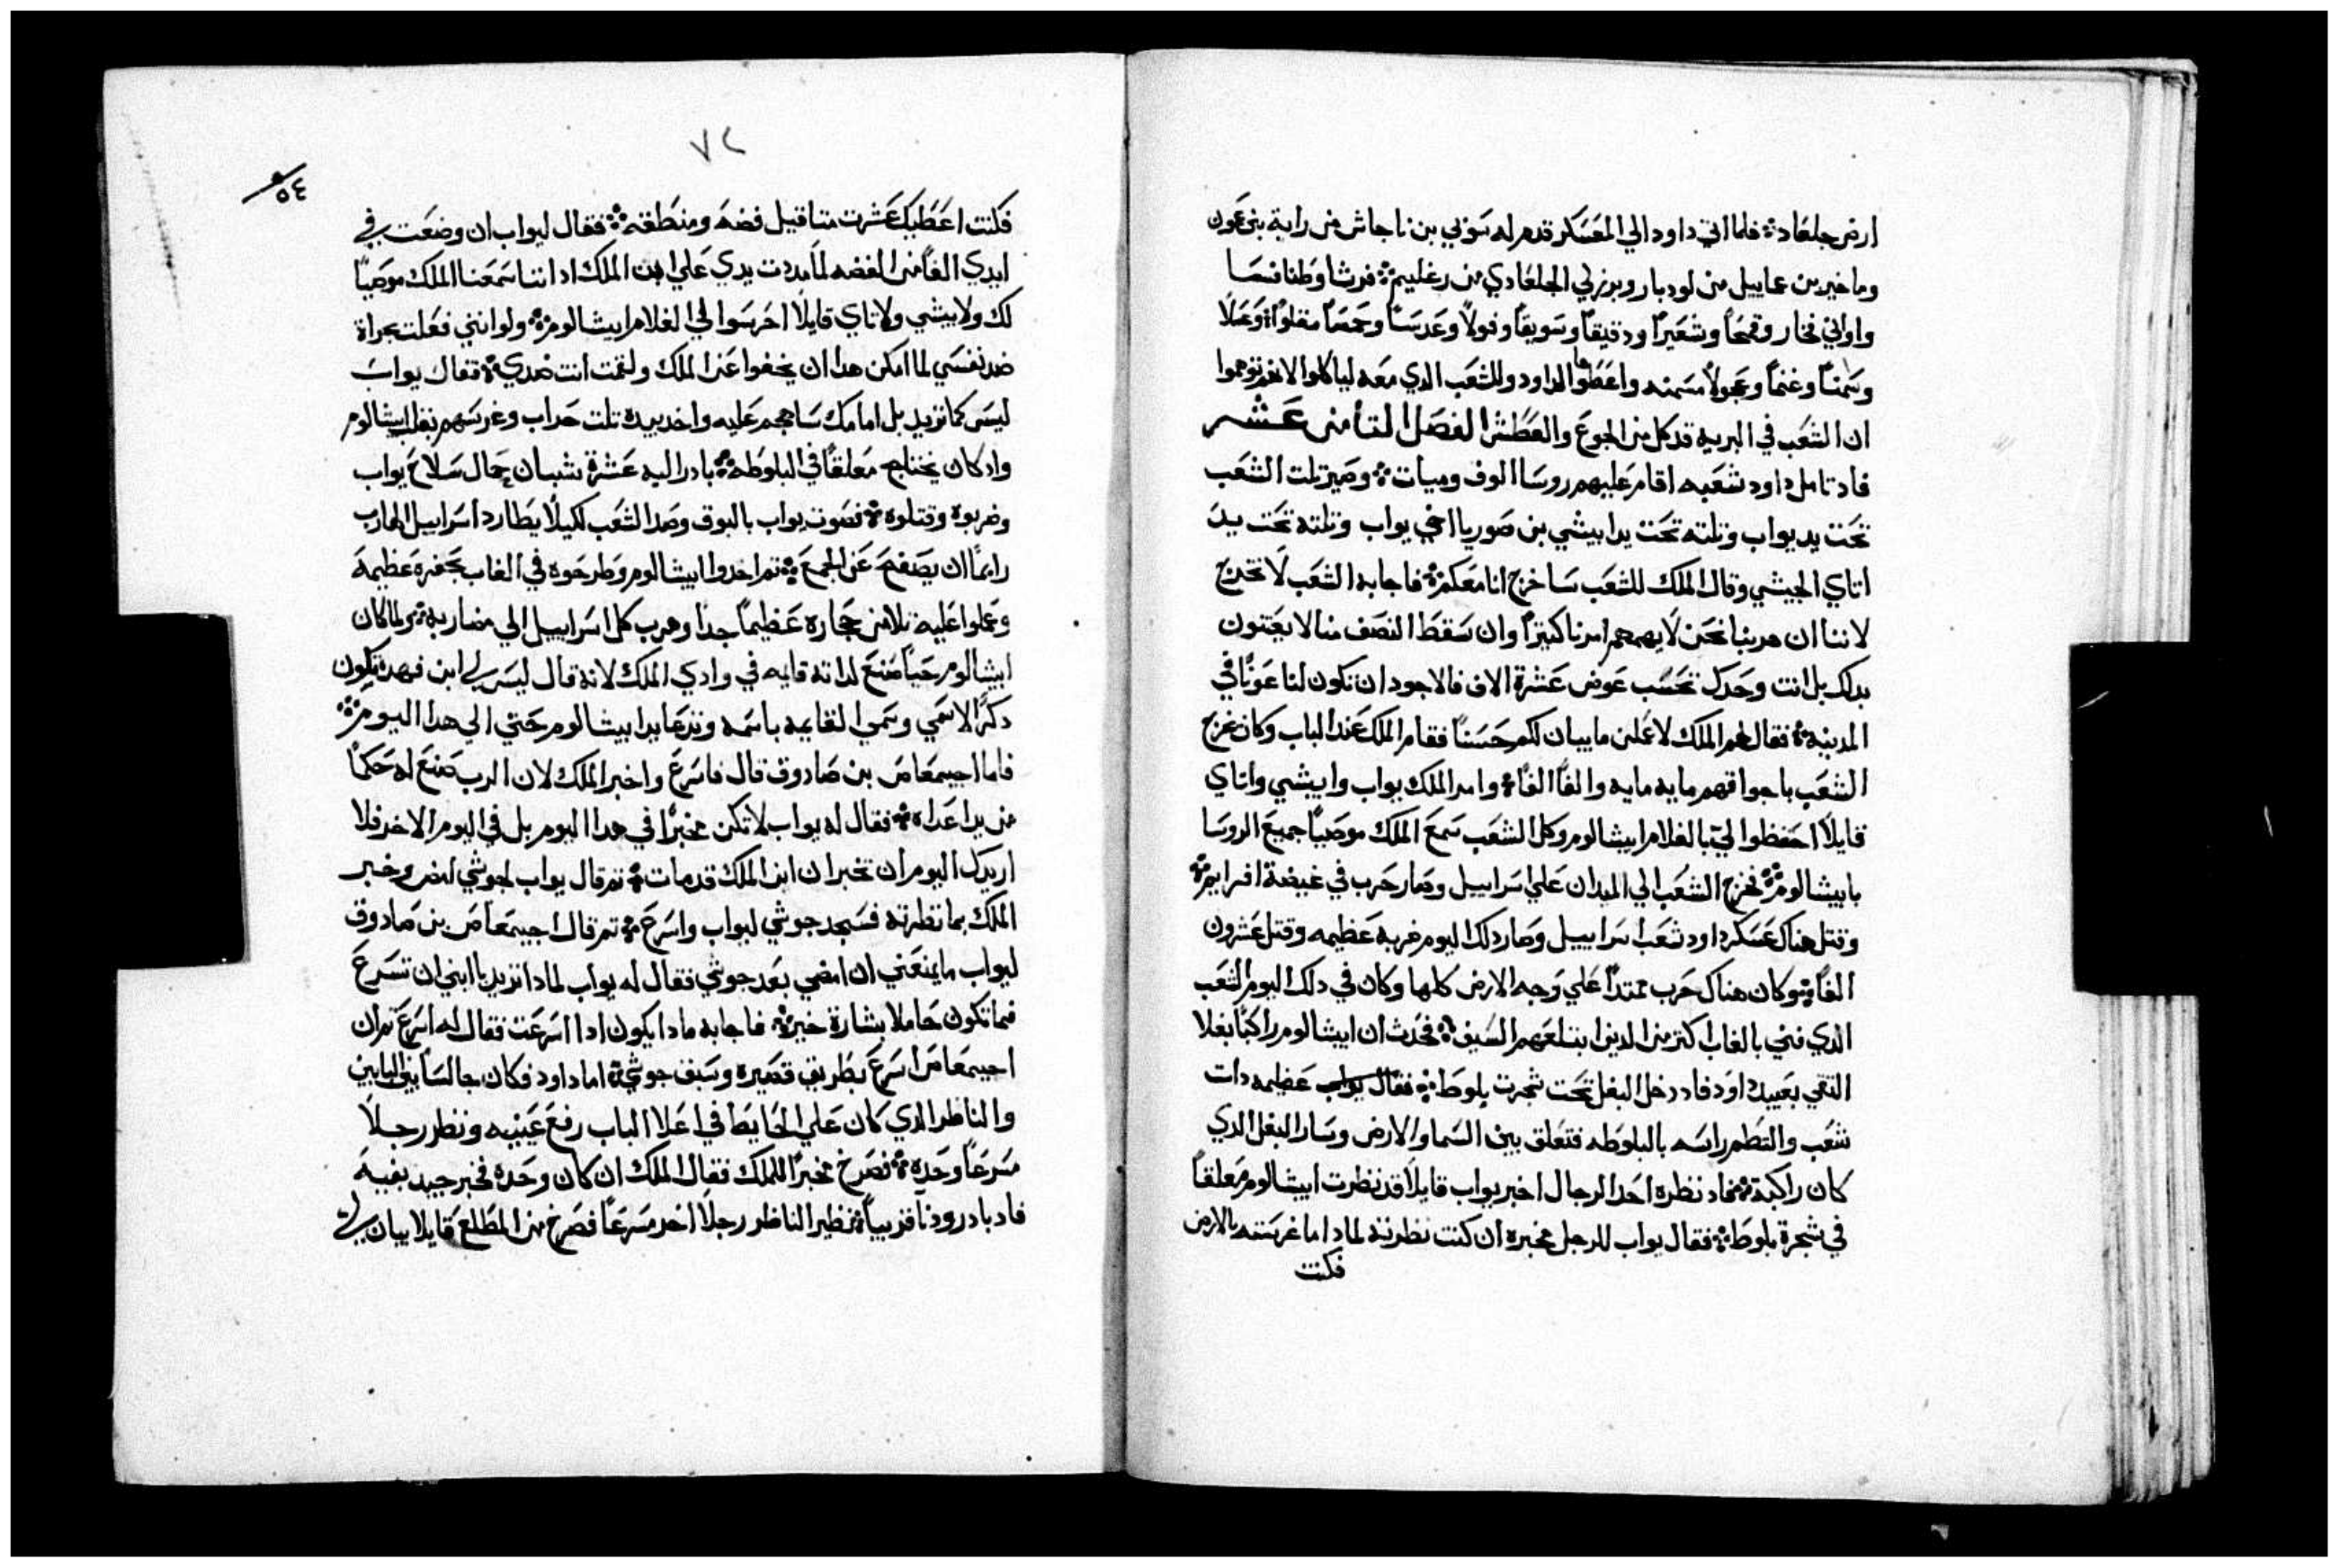 ارض جلعاد ܀ فلما اتي داود الي المعسكر قدم له سوبي بن ناجاش من رابة بني عمون
وماخير بن عاييل من لودبار وبرزلي الجلعادي من رغليم ܀ فرشا وطنافسا
واواني فخار وقمحًا وشعيرًا ودقيقًا وسويقًا وفولًا وعدسًا وحمصًا مقلوًا ܀ وعسلًا
وسمنًا وغنمًا وعجولًا مسمنه واعطوها لداود وللشعب الدي معه لياكلوا لانهم توهموا
ان الشعب في البريه قد كل من الجوع والعطش الفصل التامن عشر
فاد تامل داود شعبه اقام عليهم روسا الوف وميات ܀ وصير تلت الشعب
تحت يد يواب وتلته تحت يد ابيشي بن صوريا اخي يواب وتلته تحت يد
اتاي الجيشي وقال الملك للشعب ساخرج انا معكم ܀ فاجابه الشعب لا تخرج
لاننا ان هربنا نحن لا يهمهم امرنا كتيرًا وان سقط النصف منا لا يعتنون
بدلك بل انت وحدك تحسب عوض عشرة الاف فالاجود ان تكون لنا عونًا في
المدينه ܀ فقال لهم الملك لاعملن ما يبان لكم حسنًا فقام الملك عند الباب وكان خرج
الشعب باجواقهم مايه مايه والفًا الفًا ܀ وامر الملك يواب وابيشي واتاي
قايلًا احفظوا لي بالغلام ابيشالوم وكل الشعب سمع الملك موصيًا جميع الروسا
بابيشالوم ܀ فخرج الشعب الي الميدان علي اسراييل وصار حرب في غيضة افرايم ܀
وقتل هناك عسكر داود شعب اسراييل وصار دلك اليوم ضربه عظيمه وقتل عشرون
الفًا ܀ وكان هناك حرب ممتدًا علي وجه الارض كلها وكان في دلك اليوم الشعب
الدي فني بالغاب اكتر من الدين ابتلعهم السيف ܀ فحدث ان ابيشالوم راكبًا بغلا
التقي بعبيد داود فاد دخل البغل تحت شجرت بلوط ܀ فقال يواب عظيمه دات
شعب والتطم راسه بالبلوطه فتعلق بين السما والارض وسار البغل الدي
كان راكبه ܀ فاد نظره احد الرجال اخبر يواب قايلًا قد نظرت ابيشالوم معلقًا
في شجرة بلوط ܀ فقال يواب للرجل مخبره ان كنت نظرته لمادا ما غرسته بالارض
فكنت
٧٢
٥٤
فكنت اعطيك عشرت متاقيل فضه ومنطقه ܀ فقال ليواب ان وضعت في
ايدي الفًا من الفضه لما مددت يدي علي ابن الملك اد اننا سمعنا الملك موصيًا
لك ولابيشي ولاتاي قايلًا احرسوا لي الغلام ابيشالوم ܀ ولو انني فعلت بجراة
ضد نفسي لما امكن هدا ان يخفوا عن الملك ولقمت انت ضدي ܀ فقال يواب
ليس كما تريد بل امامك ساهجم عليه واخد بيده تلت حراب وغرسهم بقلب ابيشالوم
واد كان يختلج معلقًا في البلوطه ܀ بادر اليه عشرة شبان حمال سلاح يواب
وضربوه وقتلوه ܀ فصوت يواب بالبوق وصد الشعب لكيلا يطارد اسراييل الهارب
رايمًا ان يصفح عن الجمع ܀ تم اخدوا ابيشالوم وطرحوه في الغاب بحفره عظيمه
وعملوا عليه تلا من حجاره عظيمًا جدًا وهرب كل اسراييل الي مضاربه ܀ ولما كان
ابيشالوم حيًا صنع لداته قايمه في وادي الملك لانه قال ليس لي ابن فهده تكون
دكرًا لاسمي وسمي القايمه باسمه وتدعا يد ابيشالوم حتي الي هدا اليوم ܀
فاما اجيمعاص بن صادوق قال فاسرع واخبر الملك لان الرب صنع له حكمًا
من يد اعداه ܀ فقال له يواب لا تكن مخبرًا في هدا اليوم بل في اليوم الاخر فلا
اريدك اليوم ان تخبر ان ابن الملك قد مات ܀ تم قال يواب لجوشي امض وخبر
الملك بما نظرته فسجد جوشي ليواب واسرع ܀ تم قال اجيمعاص بن صادوق
ليواب ما يمنعني ان امضي بعد جوشي فقال له يواب لمادا تريد يا ابني ان تسرع
فما تكون حاملا بشارة خير ܀ فاجابه مادا يكون ادا اسرعت فقال له اسرع تم ان
اجيمعاص اسرع بطريق قصيره وسبق جوشي ܀ اما داود فكان جالسًا بين البابين
والناظر الدي كان علي الحايط في اعلا الباب رفع عينيه ونظر رجلًا
مسرعًا وحده ܀ فصرخ مخبرًا للملك فقال الملك ان كان وحده فخبر جيد بفيه
فاد بادر ودنا قريبًا ܀ نظر الناظر رجلًا اخر مسرعًا فصرخ من المطلع قايلا يبان لي